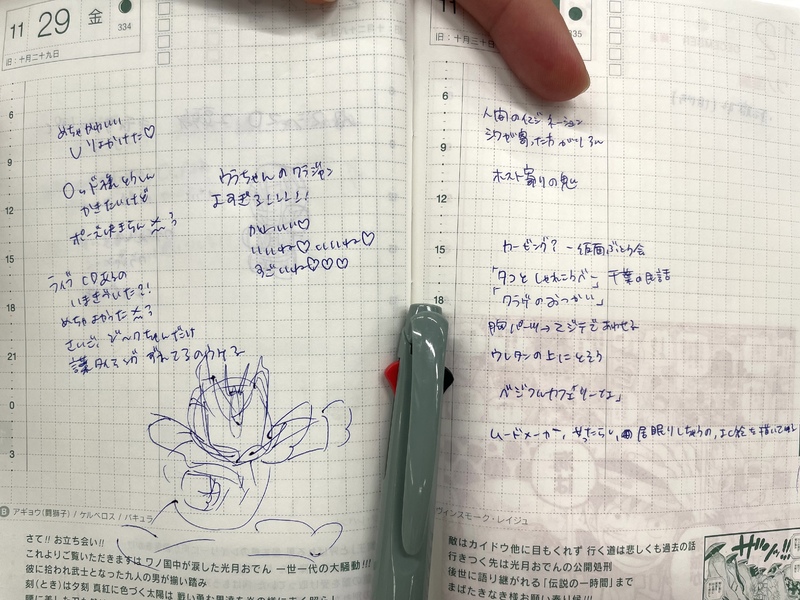 11 29 金
334
旧：十月二十九日
6
9
12
15
18
21
0
3
めちゃかわいい
しりょかけた♡
ロッド様とうしん
かきたいけど
ポーズ決まらん
ライブCDあるの
いまきづいた?!
めちゃよかった
さいご、
ちゃんだけ
タイミングずれてるのウケる
ウラちゃんの
よすぎる!!!!!
かわいい♡
いいね♡いいね♡
すごいね♡♡♡
B アギョウ(闘獅子) / ケルベロス / バキュラ
さて!! お立ち合い!!
これよりご覧いただきますは ワノ国中が涙した光月おでん 一世一代の大騒動!!!
彼に拾われ武士となった九人の男が揃い踏み
刻(とき)は夕刻 真紅に色づく太陽は
11
335
旧：十月三十日
6
9
12
15
18
21
0
3
人間のイマジネーション
シワが寄った方が
ホスト寄りの鬼
カービング？ー仮面ぶとう会
「タコとしゃれこうべ」千葉の民話
「クラゲのおつかい」
胸パーツ→マジテであわせる
ウレタンの上にとそう
ベジフルカフェ
ムードメーカー、
居眠りしちゃうの、
ヴィンスモーク・レイジュ
敵はカイドウ他に目もくれず 行く道は悲しくも過去の話
行きつく先は光月おでんの公開処刑
後世に語り継がれる「伝説の一時間」まで
まばたきなき様お願い奉り候!!!